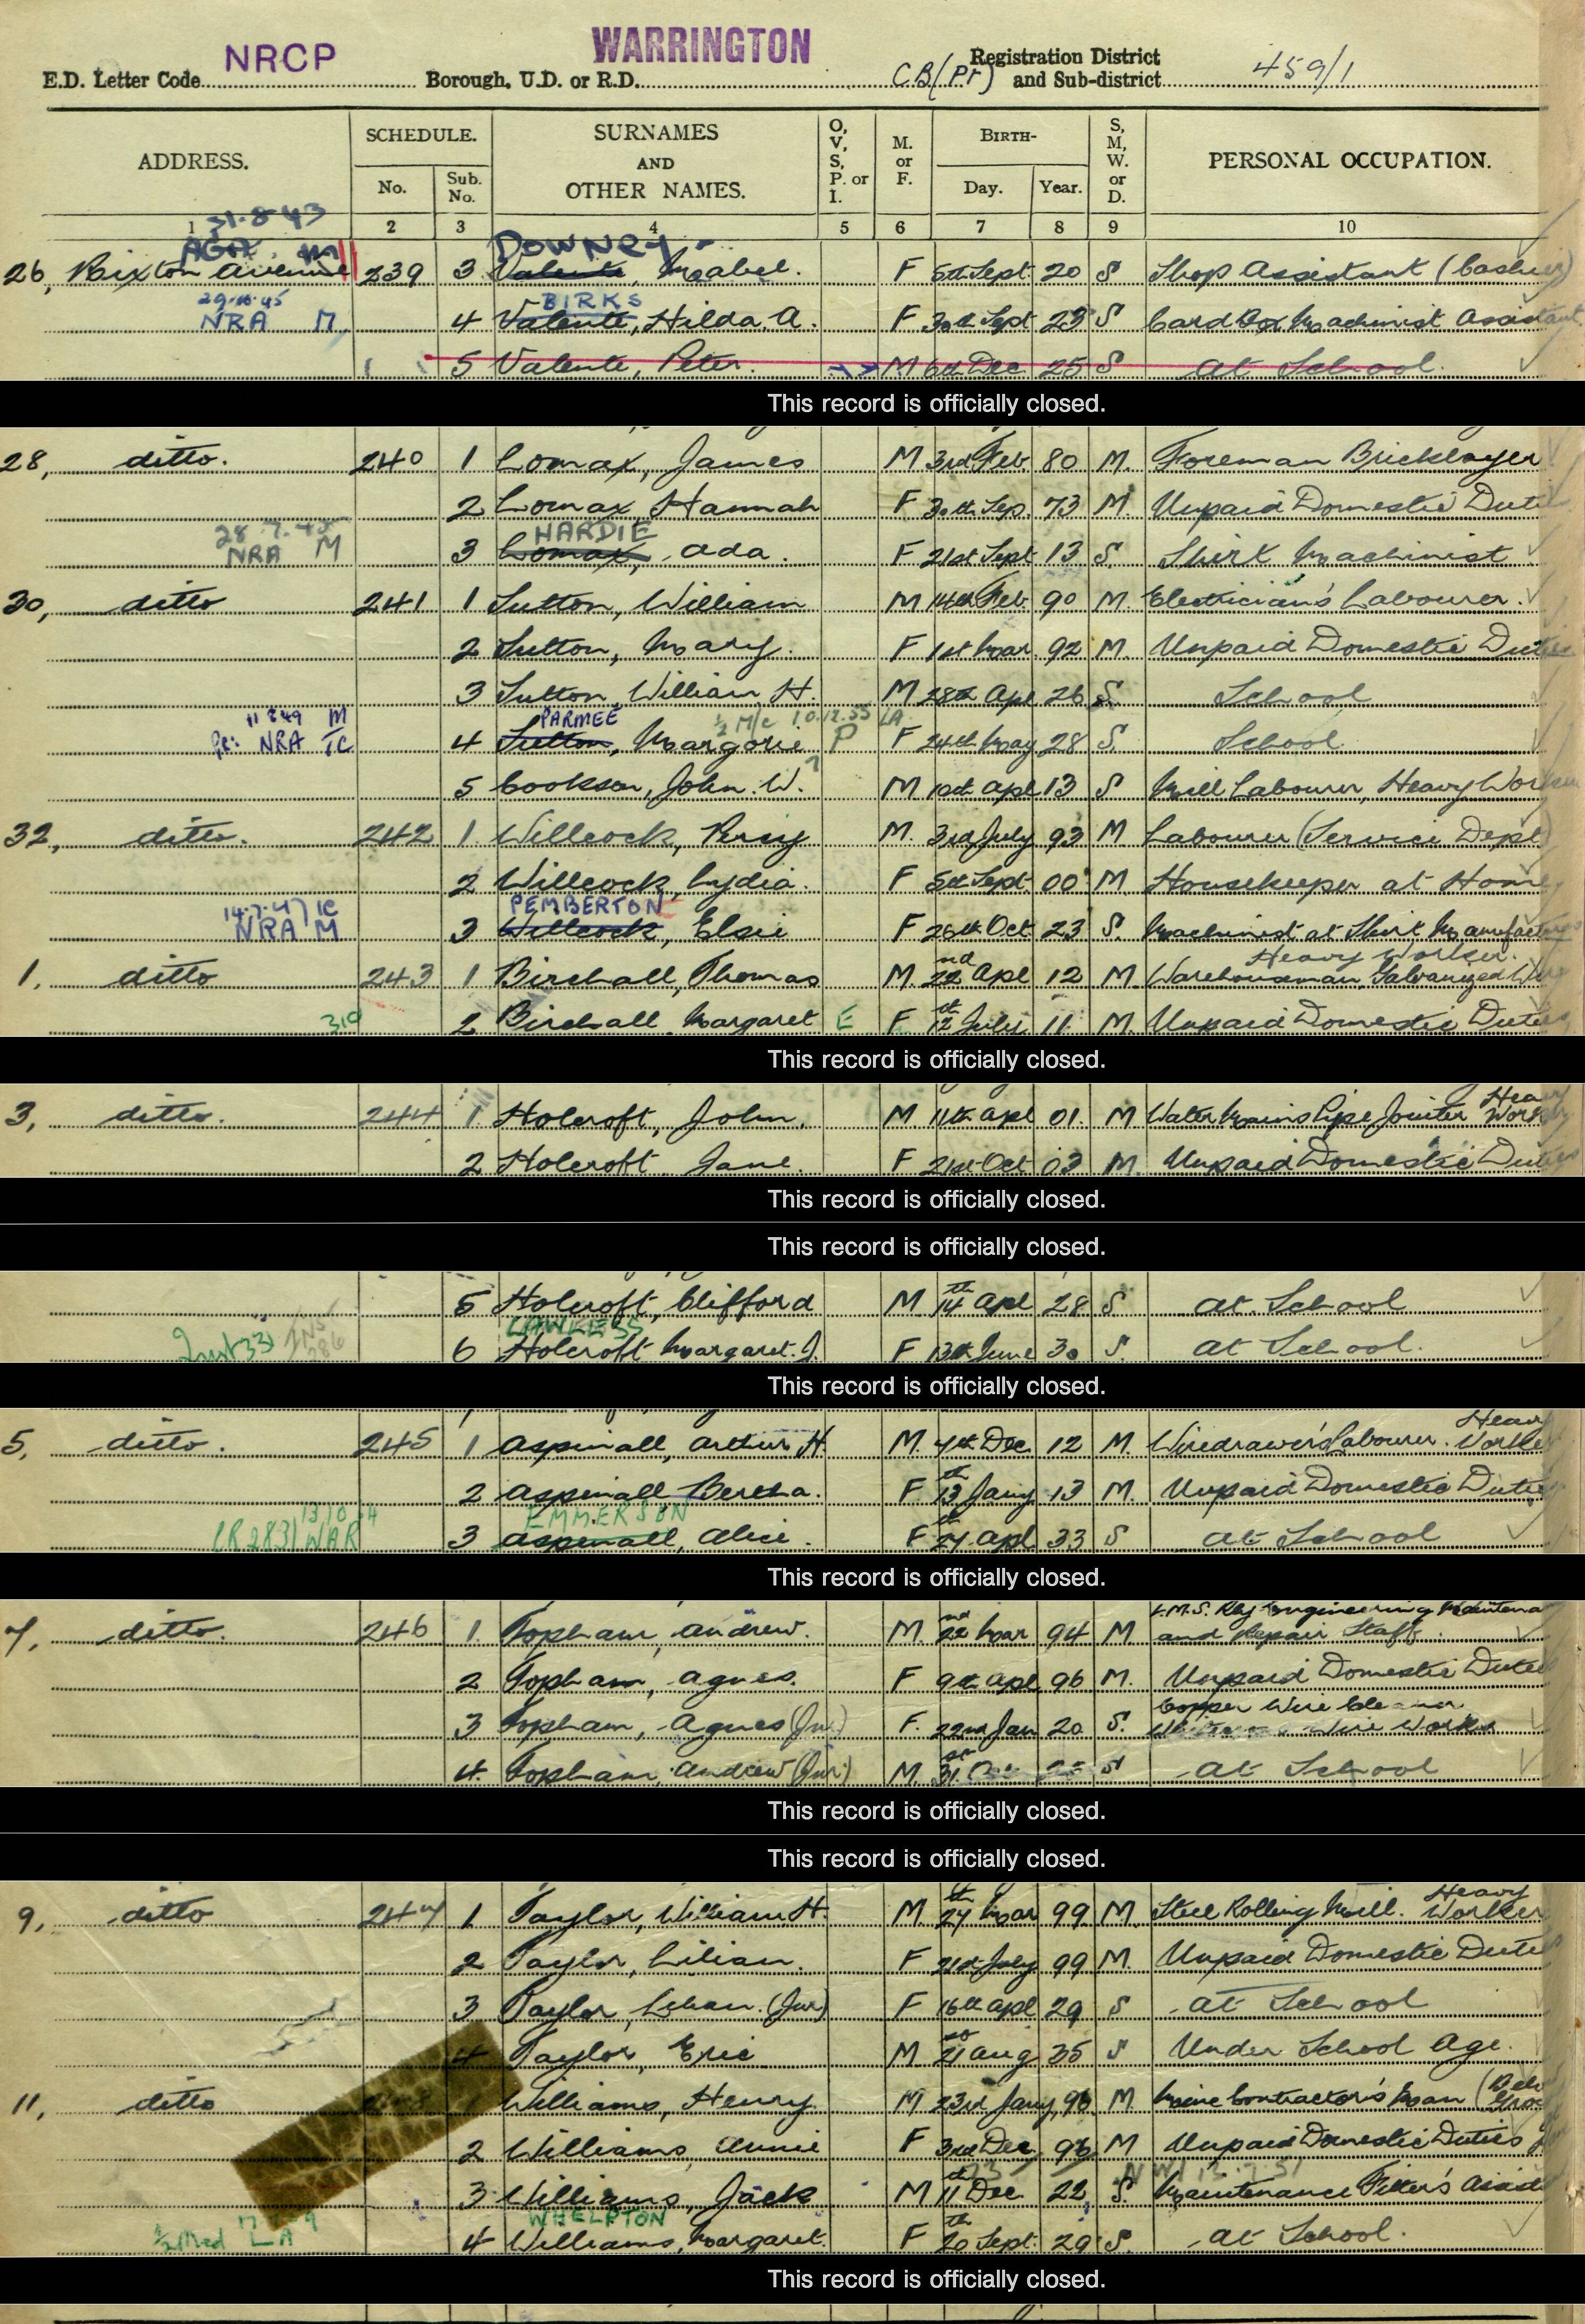 NRCP WARRINGTON
E.D. Letter Code Borough, U.D. or R.D. C.B(Pt) Registration District and Sub-district 459/1
ADDRESS. SCHEDULE. No. Sub. No. SURNAMES AND OTHER NAMES. O, V, S, P. or I. M. or F. BIRTH- Day. Year. S, M, W. or D. PERSONAL OCCUPATION.
1 2 3 4 5 6 7 8 9 10
31·8·43
AGA M DOWNEY
26, Rixton Avenue 239 3 Valente, Mabel. F 5th Sept 20 S Shop Assistant (Cashier)
29·10·45 BIRKS
NRA M 4 Valente, Hilda A. F 30th Sept 23 S Card Box Machinist Assistant
5 Valente, Peter. M 6th Dec 25 S At School.
This record is officially closed.
28, ditto. 240 1 Lomax, James M 3rd Feb 80 M. Foreman Bricklayer
2 Lomax Hannah F 30th Sep. 73 M. Unpaid Domestic Duti
28.7.45 HARDIE
NRA M 3 Lomax, Ada. F 21st Sept 13 S. Shirt Machinist
30, ditto 241 1 Sutton, William M 14th Feb 90 M. Electrician's Labourer.
2 Sutton, Mary. F 1st Mar. 92 M. Unpaid Domestic Duties
3 Sutton, William H. M 28th Apl 26 S. School
M PARMEE ½ M/c 10.12.55 LA
NRA TC 4 Sutton, Margorie P F 24th May 28 S. School
5 Cookson, John. W. M 10th Apl 13 S Mill Labourer, Heavy Worker
32, ditto. 242 1 Willcock, Percy M. 3rd July 93 M Labourer (Service Dept)
2 Willcock, Lydia. F 5th Sept 00 M Housekeeper at Home
14·7·47 TC PEMBERTON
NRA M 3 Willcock, Elsie F 26th Oct 23 S. Machinist at Shirt Manufacturers
Heavy Worker.
1, ditto 243 1 Birchall, Thomas M. 22nd Apl 12 M Warehouseman, Galvanized Wire
310 2 Birchall Margaret E F 12th July 11 M. Unpaid Domestic Duties
This record is officially closed.
3, ditto. 244 1. Holcroft, John. M 11th Apl 01. M Water Mains Pipe Jointer Heavy Work
2 Holcroft Jane. F 21st Oct 03 M. Unpaid Domestic Duties
This record is officially closed.
This record is officially closed.
5 Holcroft, Clifford M 14th Apl 28 S At School
LAWLESS
6 Holcroft Margaret. J. F 13th June 30 S. At School.
This record is officially closed.
5, ditto. 245 1 Aspinall, Arthur H. M. 4th Dec 12 M. Wiredrawer's Labourer. Heavy Worker
2 Aspinall Bertha. F 13th Jany 13 M. Unpaid Domestic Duties
13 10 EMMERSON
(R283) WAR 3 Aspinall, Alice. F 27th Apl 33 S At School
This record is officially closed.
7, ditto. 246 1. Topham, Andrew. M. 22nd Mar 94 M L.M.S. Rly Engineering Maintena and Repair Staff.
2 Topham, Agnes. F 9th Apl 96 M. Unpaid Domestic Duties
3 Topham, Agnes (Jnr) F. 22nd Jan 20 S. Copper Wire Cleaner Wire Works
4. Topham, Andrew (Jnr) M. 31st 25 S At School
This record is officially closed.
This record is officially closed.
9, ditto 247 1 Taylor, William H. M. 27th Mar 99 M. Steel Rolling Mill. Heavy Worker
2 Taylor, Lilian. F 21st July 99 M. Unpaid Domestic Duties
3 Taylor, Lilian. (Jnr) F 16th Apl 29 S At School
4 Taylor, Eric M 21st Aug 35 S Under School Age.
11, ditto 248 1 Williams, Henry M 23rd Jany 96 M Mine Contractor's Man
2 Williams, Annie F 3rd Dec 96 M Unpaid Domestic Duties
3 Williams, Jack M 11th Dec 22 S. Maintenance Fitter's Assist
½ Med LA WHELPTON
4 Williams, Margaret. F 20th Sept. 29 S. At School.
This record is officially closed.